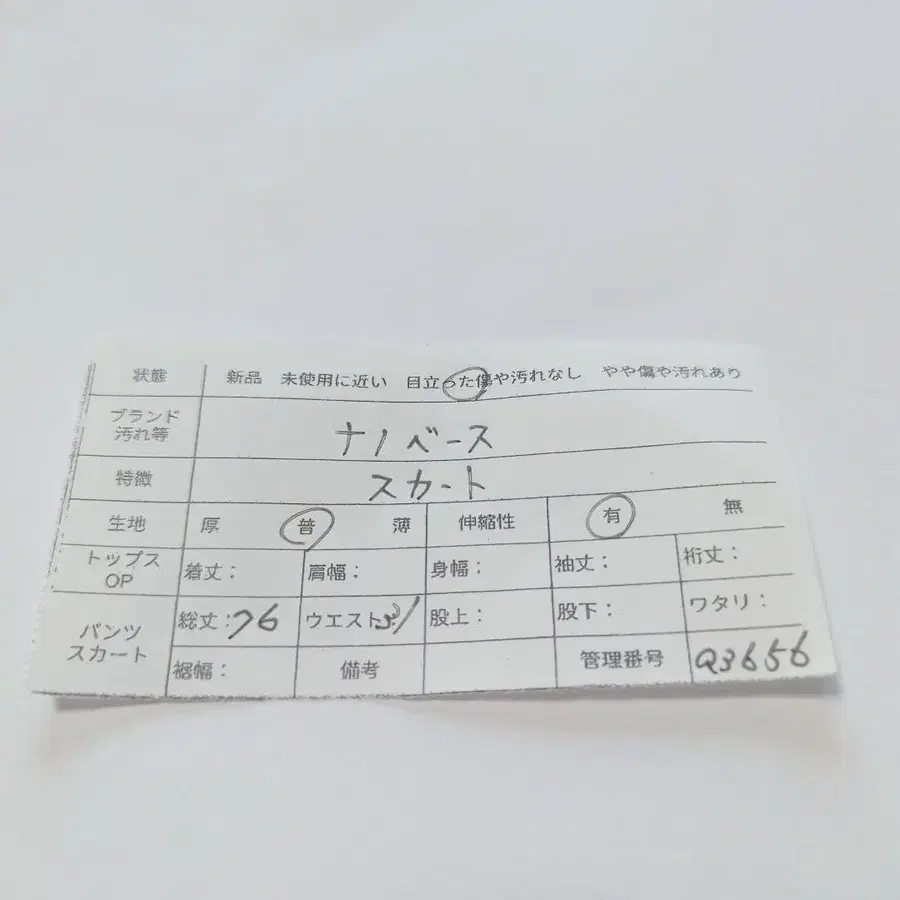 状態 新品 未使用に近い 目立った傷や汚れなし やや傷や汚れあり
ブランド
汚れ等
ナノベース
特徴 スカート
生地 厚 普 薄 伸縮性 有 無
トップス
OP
着丈: 肩幅: 身幅: 袖丈: 裄丈:
パンツ
スカート
総丈:76 ウエスト31 股上: 股下: ワタリ:
裾幅: 備考 管理番号 Q3656